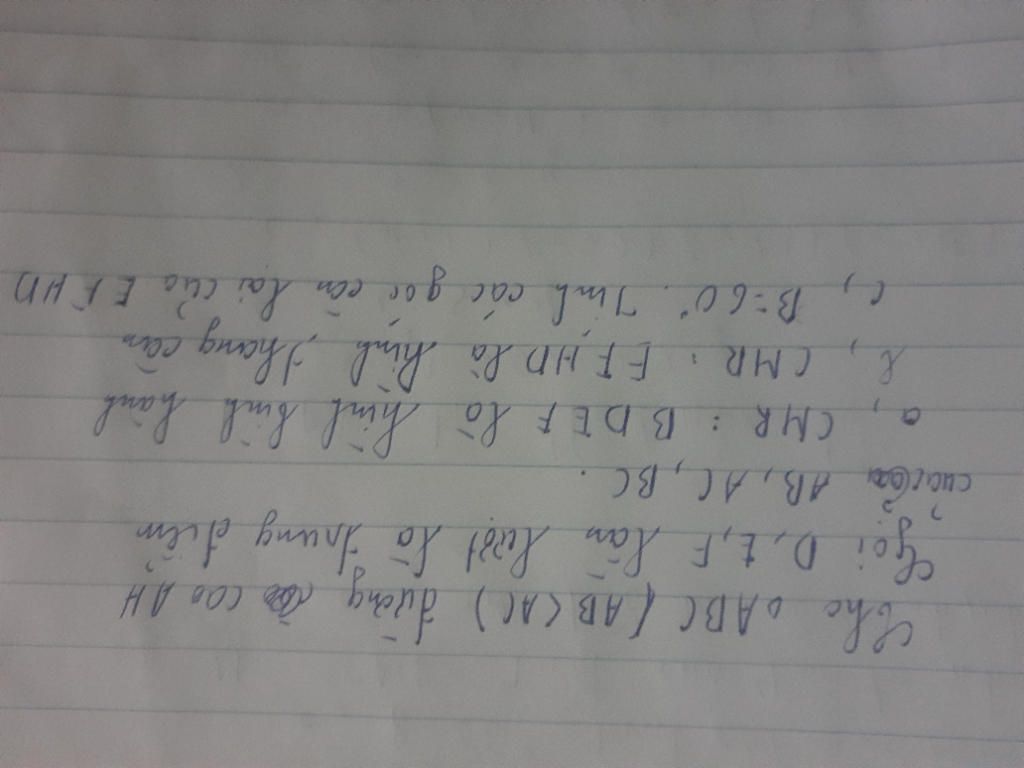 Cho △ABC (AB<AC) đường cao AH
Gọi D, E, F lần lượt là trung điểm
của AB, AC, BC.
a, CMR: BDEF là hình bình hành
b, CMR: EFHD là hình thang cân
c, B=60°. Tính các góc còn lại của EFHD